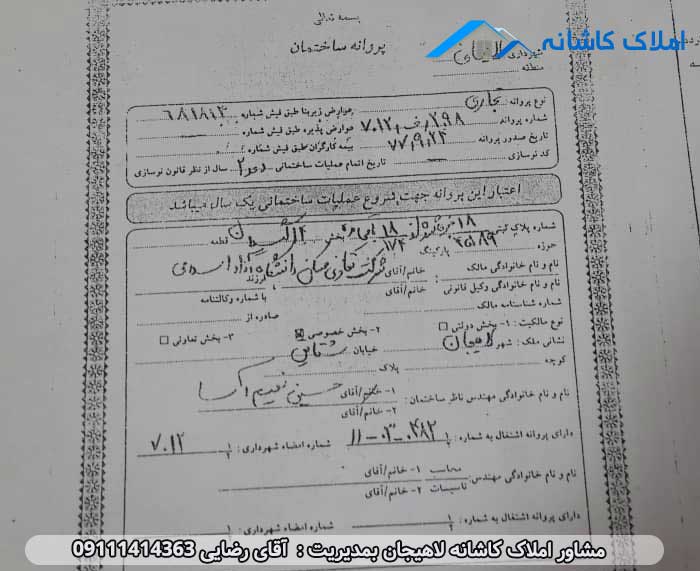 بسمه تعالی
املاک کاشانه
پروانه ساختمان
شهرداری لاهیجان
منطقه
نوع پروانه : تجاری عوارض زیربنا طبق فیش شماره
شماره پروانه عوارض پذیره طبق فیش شماره :
تاریخ صدور پروانه ۷۷/۹/۲۴ بیمه کارگران طبق فیش شماره :
کد نوسازی تاریخ اتمام عملیات ساختمانی سال از نظر قانون نوسازی
اعتبار این پروانه جهت شروع عملیات ساختمانی یک سال میباشد
شماره پلاک ثبتی بخش قطعه
حوزه پارکینگ
نام و نام خانوادگی مالک : خانم/آقای شرکت تعاونی مسکن دانشگاه آزاد اسلامی
نام و نام خانوادگی وکیل قانونی : خانم/آقای فرزند
شماره شناسنامه مالک : با شماره وکالتنامه
صادره از :
نوع مالکیت : ۱- بخش دولتی ۲- بخش خصوصی ۳- بخش تعاونی
نشانی ملک : شهر لاهیجان خیابان
کوچه پلاک
نام و نام خانوادگی مهندس ناظر ساختمان : ۱- خانم/آقای حسین
۲- خانم/آقای
دارای پروانه اشتغال به شماره : ۱۱-۰۳-۰۴۸۲ شماره امضاء شهرداری : ۷۰۱۲
نام و نام خانوادگی مهندس : محاسب ۱- خانم/آقای
تاسیسات ۲- خانم/آقای
دارای پروانه اشتغال به شماره : شماره امضاء شهرداری :
مشاور املاک کاشانه لاهیجان بمدیریت : آقای رضایی 09111414363